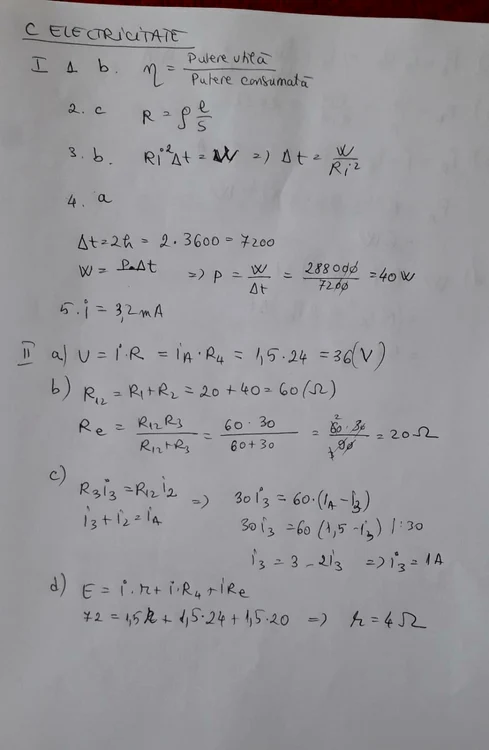 C ELECTRICITATE
I 1 b. η = Putere utilă / Putere consumată
2. c R = ρ l/S
3. b. Ri²Δt = W => Δt = W/Ri²
4. a
Δt = 2h = 2·3600 = 7200
W = P·Δt => P = W/Δt = 288000/7200 = 40 W
5. i = 3,2 mA
II a) U = i·R = iA·R4 = 1,5·24 = 36 (V)
b) R12 = R1 + R2 = 20 + 40 = 60 (Ω)
Re = R12 R3 / R12 + R3 = 60·30 / 60+30 = 60·30 / 90 = 20 Ω
c) R3 i3 = R12 i2 => 30 i3 = 60·(iA - i3)
i3 + i2 = iA 30 i3 = 60 (1,5 - i3) |:30
i3 = 3 - 2i3 => i3 = 1A
d) E = i·r + i·R4 + iRe
72 = 1,5r + 1,5·24 + 1,5·20 => r = 4 Ω